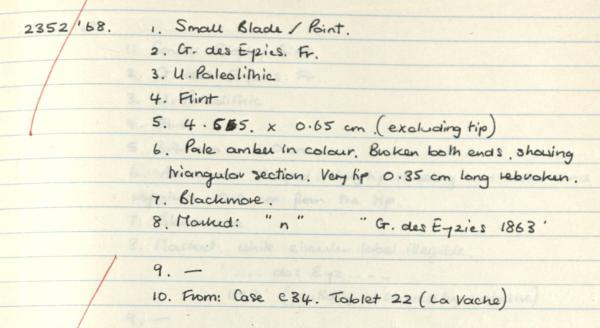 2352/'68. 1. Small Blade / Point.
2. G. des Eyzies. Fr.
3. U. Paleolithic
4. Flint
5. 4.55. x 0.65 cm. (excluding tip)
6. Pale amber in colour. Broken both ends, showing
triangular section. Very tip 0.35 cm long rebroken.
7. Blackmore.
8. Marked: "n" "G. des Eyzies 1863"
9. —
10. From: Case C34. Tablet 22 (La Vache)